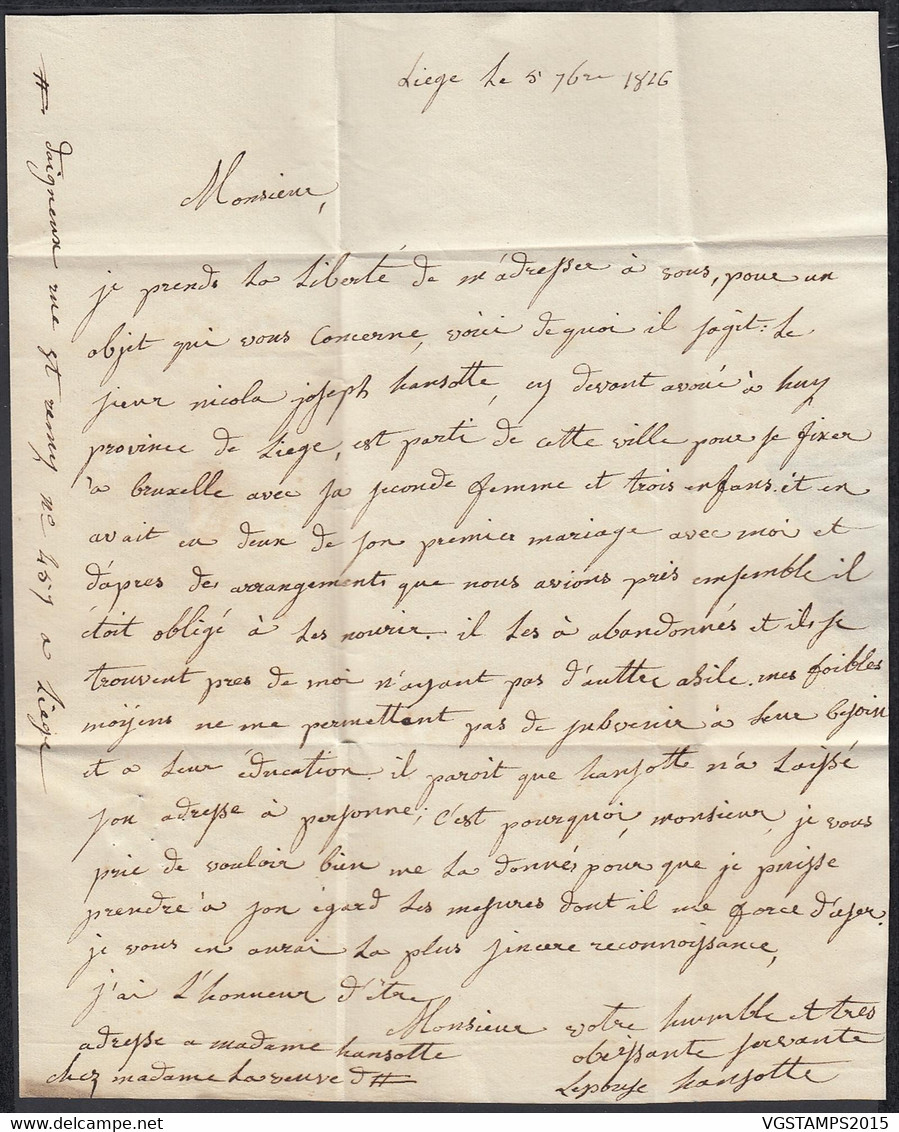 Liege Le 5 7bre 1826
Monsieur,
je prends La Liberté de m'adresser à vous, pour un
objet qui vous Concerne, voici de quoi il sagit: Le
sieur nicola joseph hansotte, cy devant avoué à huy
province de Liege, est parti de cette ville pour se fixer
à bruxelle avec sa seconde femme et trois enfans. et en
avait eu deux de son premier mariage avec moi et
d'apres des arrangements que nous avions pris ensemble il
étoit obligé à Les nourir. il Les à abandonnés et ils se
trouvent pres de moi n'ayant pas d'auttre asile. mes foibles
moÿens ne me permettent pas de subvenir à Leur besoin
et a Leur éducation. il paroit que hansotte n'a Laissé
son adresse à personne; C'est pourquoi, monsieur, je vous
prie de vouloir bien me La donnés pour que je puisse
prendre à son égard Les mesures dont il me force d'user.
je vous en aurai La plus sincere reconnoissance,
j'ai L'honneur d'être
Monsieur votre humble et tres
obeissante servante
Lepouse hansotte
adresse a madame hansotte
chez madame La veuve d#
# daigneux rue st remy no 459 a Liege
VGSTAMPS2015